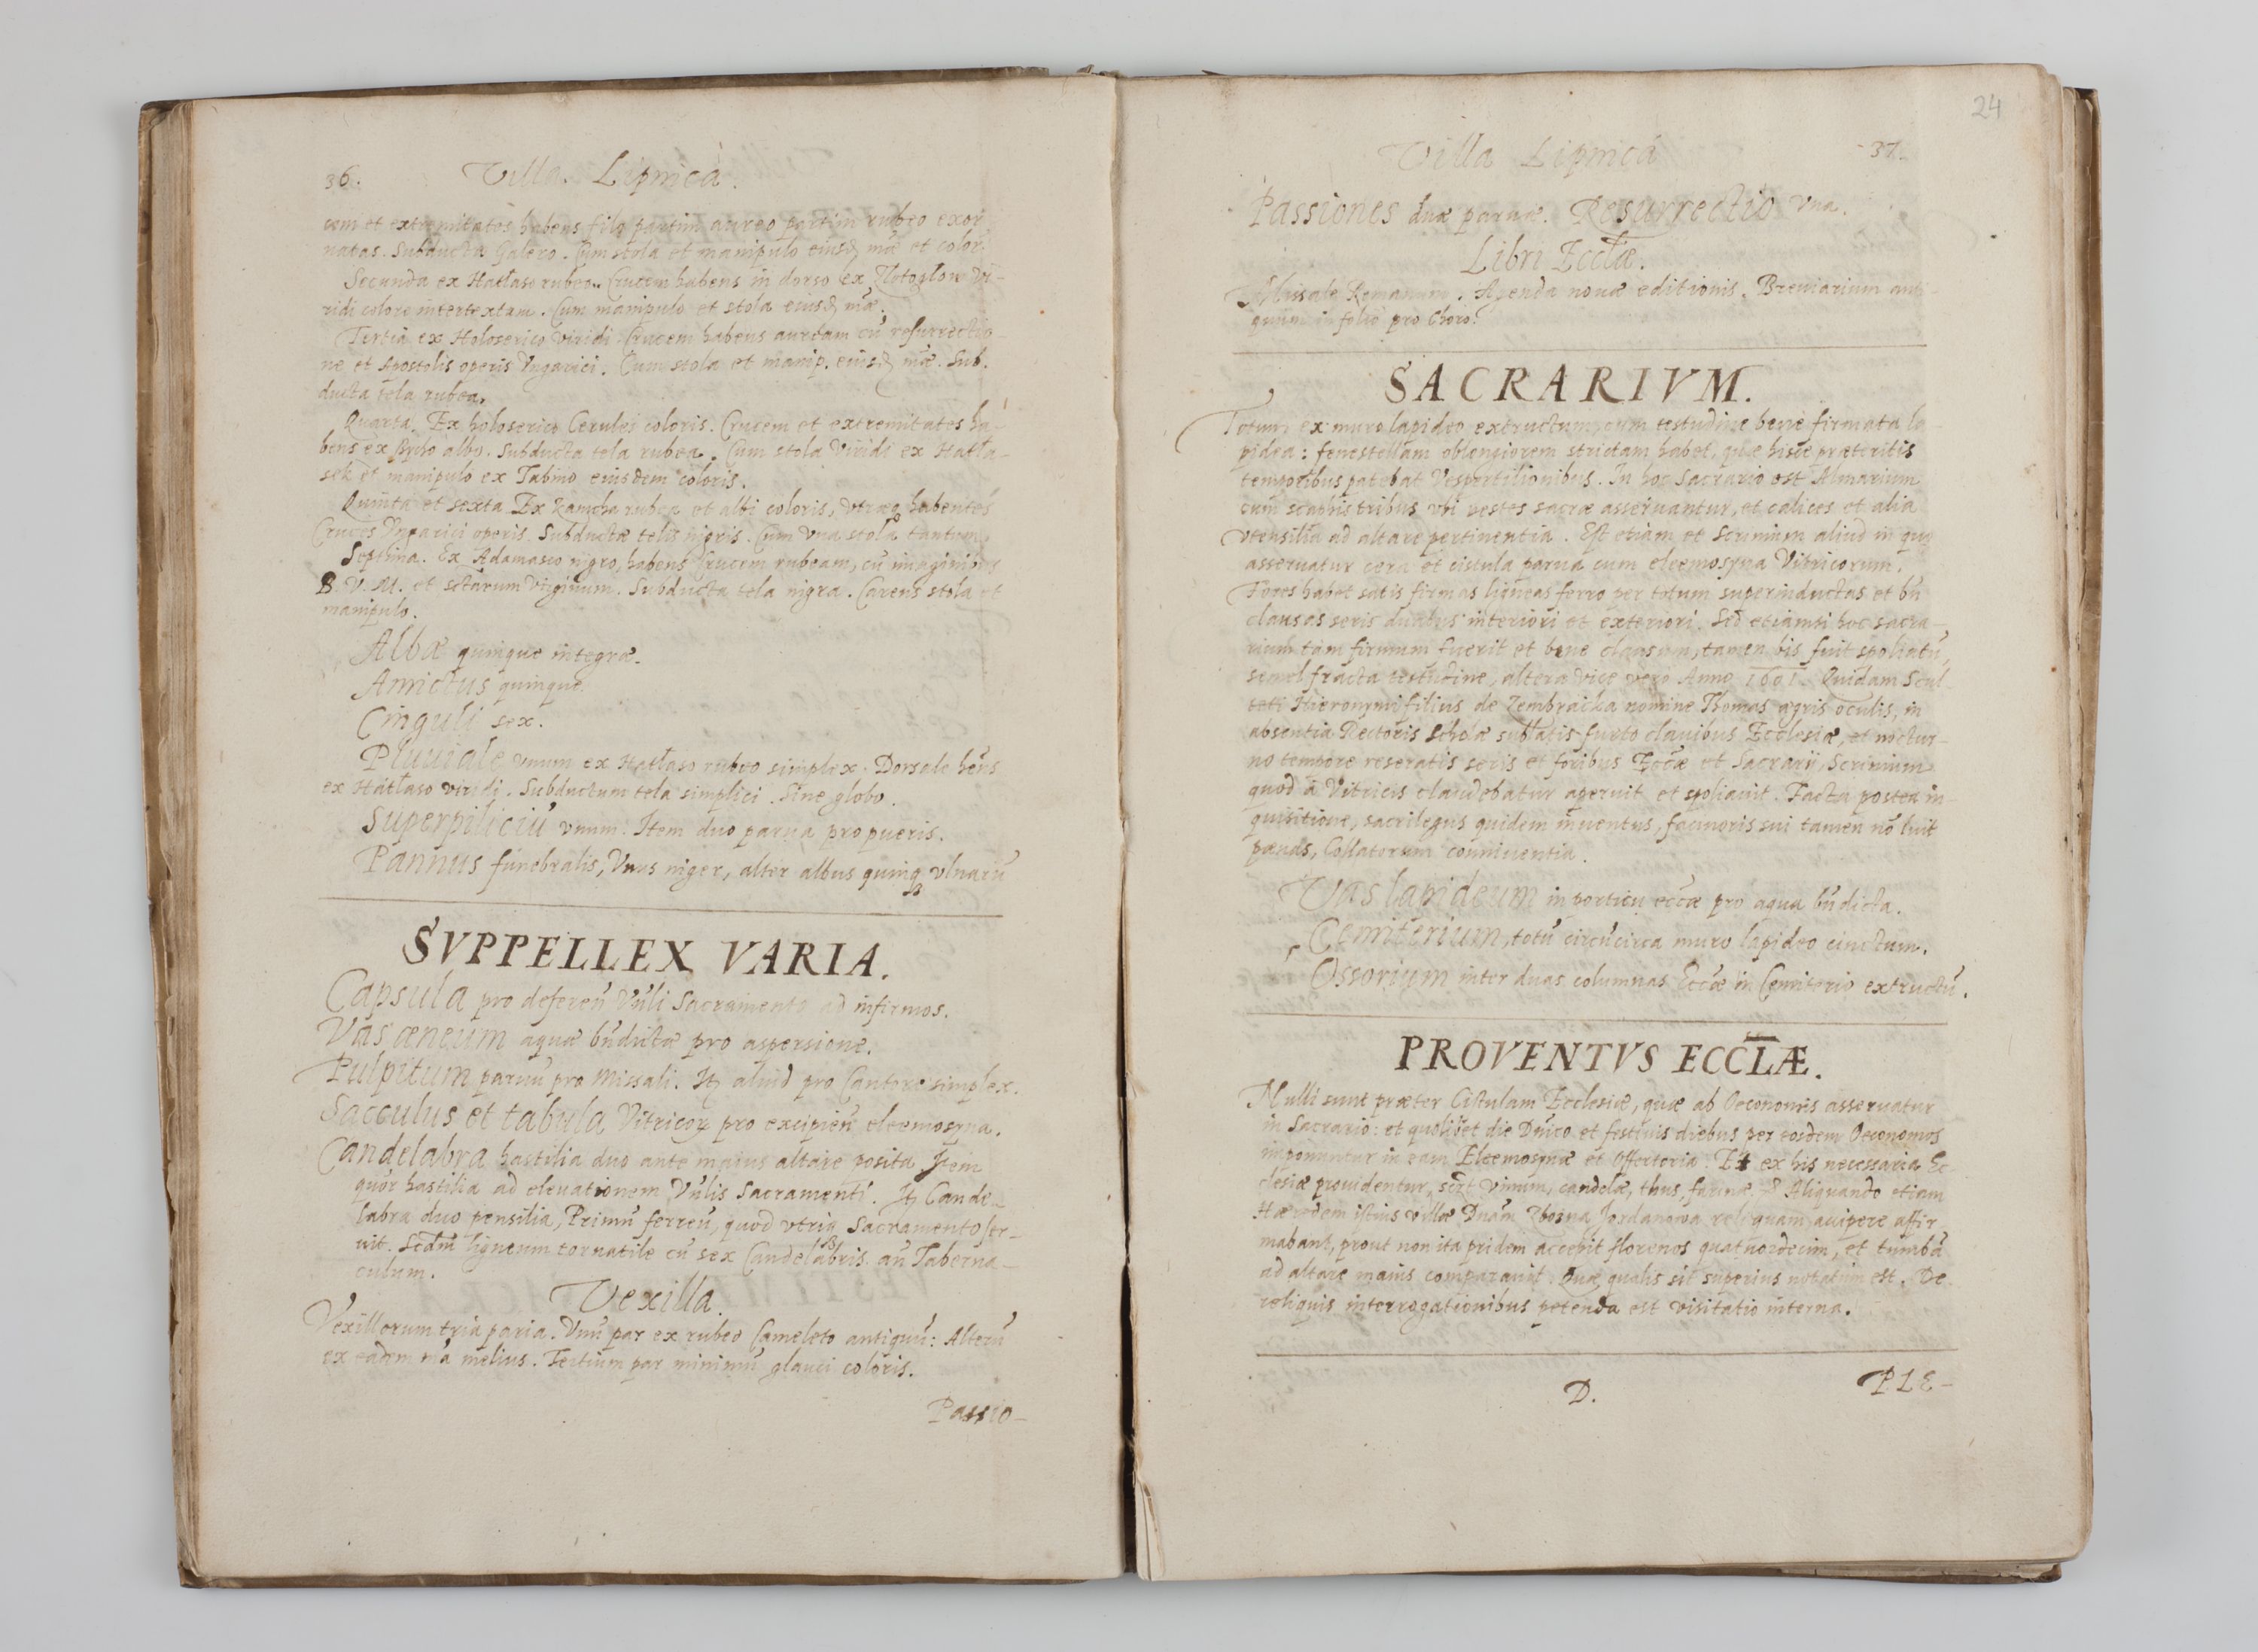 36. Villa. Lipnica.
cem et extremitates habens filo partim aureo partim rubeo exor
natas. Subducta Galero. Cum stola et manipulo eiusd mae et color.
Secunda ex Hatłaso rubeo. Crucem habens in dorso ex Złotogłow vi-
ridi colore intertextam. Cum manipulo et stola eiusd mae.
Tertia ex Holoserico viridi Crucem habens auream cū resurrectio-
ne et Apostolis operis Vngarici. Cum stola et manip. eiusd mae. Sub.
ducta tela rubea.
Quarta. Ex holoserico Cerulei coloris. Crucem et extremitates ha-
bens ex albo. Subducta tela rubea. Cum stola Viridi ex Hatła-
sek et manipulo ex Tabino eiusdem coloris.
Quinta et sexta Ex Kamcha rubea et albi coloris, vtraeq habentes
Cruces Vngarici operis. Subductae telis nigris. Cum vna stola tantum.
Septima. Ex Adamasco nigro, habens Crucem rubeam, cū imaginibus
B. V. M. et sctarum Virginum. Subducta tela nigra. Carens stola et
manipulo.
Albae quinque integrae.
Amictus quinque.
Cinguli sex.
Pluuiale vnum ex Hatłaso rubeo simplex. Dorsale hēns
ex Hatłaso viridi. Subductum tela simplici. Sine globo.
Superpiliciū vnum. Item duo parua pro pueris.
Pannus funebralis, Vnus niger, alter albus quinq vlnarū
SVPPELLEX VARIA.
Capsula pro deferen Vn̄li Sacramento ad infirmos.
Vas aeneum aquae bn̄dictae pro aspersione.
Pulpitum paruū pro Missali. It aliud pro Cantore simplex.
Sacculus et tabula Vitricor pro excipien eleemosyna.
Candelabra hastilia duo ante maius altare posita. Item
quōr hastilia ad eleuationem Vn̄lis Sacramenti. It Cande-
labra duo pensilia, Primū ferreū, quod vtriq Sacramento ser-
uit. Scdm̄ ligneum tornatile cū sex Candelabris an̄ Taberna-
culum.
Vexilla.
Vexillorum tria paria. Vnū par ex rubeo Cameleto antiquū: Alterū
ex eadem mā melius. Tertium par minimū glauci coloris.
Passio-
24
Villa Lipnica 37.
Passiones duae paruae. Resurrectio vna.
Libri Ecclae.
Missale Romanum. Agenda nouae editionis. Breuiarium anti-
quum in folio pro Choro.
SACRARIVM.
Totum ex muro lapideo extructum, cum testudine bene firmata la-
pidea: fenestellam oblongiorem strictam habet, quae hisce praeteritis
temporibus patebat Vespertilionibus. In hoc Sacrario est Almarium
cum scabris tribus vbi vestes sacrae asseruantur, et calices et alia
vtensilia ad altare pertinentia. Est etiam et Scrinium aliud in quo
asseruatur cera et cistula parua cum eleemosyna Vitricorum.
Fores habet satis firmas ligneas ferro per totum superinductas et bn̄
clausas seris duabus interiori et exteriori. Sed etiamsi hoc sacra-
rium tam firmum fuerit et bene clausum, tamen bis fuit spoliatū,
semel fracta testudine, altera vice vero Anno 1601. Quidam Scul-
teti Hieronymi filius de Zembracha nomine Thomas agris oculis, in
absentia Rectoris Scholae sublatis furto clauibus Ecclesiae, et noctur-
no tempore reseratis seris et foribus Eccae et Sacrarii, Scrinium
quod à Vitricis claudebatur aperuit et spoliauit. Facta postea in-
quisitione, sacrilegus quidem inuentus, facinoris sui tamen nō luit
paenas, Collatorum conniuentia.
Vas lapideum in porticu eccae pro aqua bn̄dicta.
Cemiterium, totū circūcirca muro lapideo cinctum.
Ossorium inter duas columnas Eccae in Cemiterio extructū.
PROVENTVS ECCLÆ.
Nulli sunt praeter Cistulam Ecclesiae, quae ab Oeconomis asseruatur
in Sacrario: et quolibet die Dn̄ico et festiuis diebus per eosdem Oeconomos
imponuntur in eam Eleemosynae et Offertoria. Et ex his necessaria Ec-
clesiae prouidentur, vinum, candelae, thus, farinae, Aliquando etiam
Haeredem istius villae Dnam Zbozna Jordanowa reliquam accipere affir
mabant, prout non ita pridem accepit florenos quatuordecim, et tumbā
ad altare maius comparauit. Quae qualis sit superius notatum est. De
reliquis interrogationibus petenda est visitatio interna.
D. PLE-